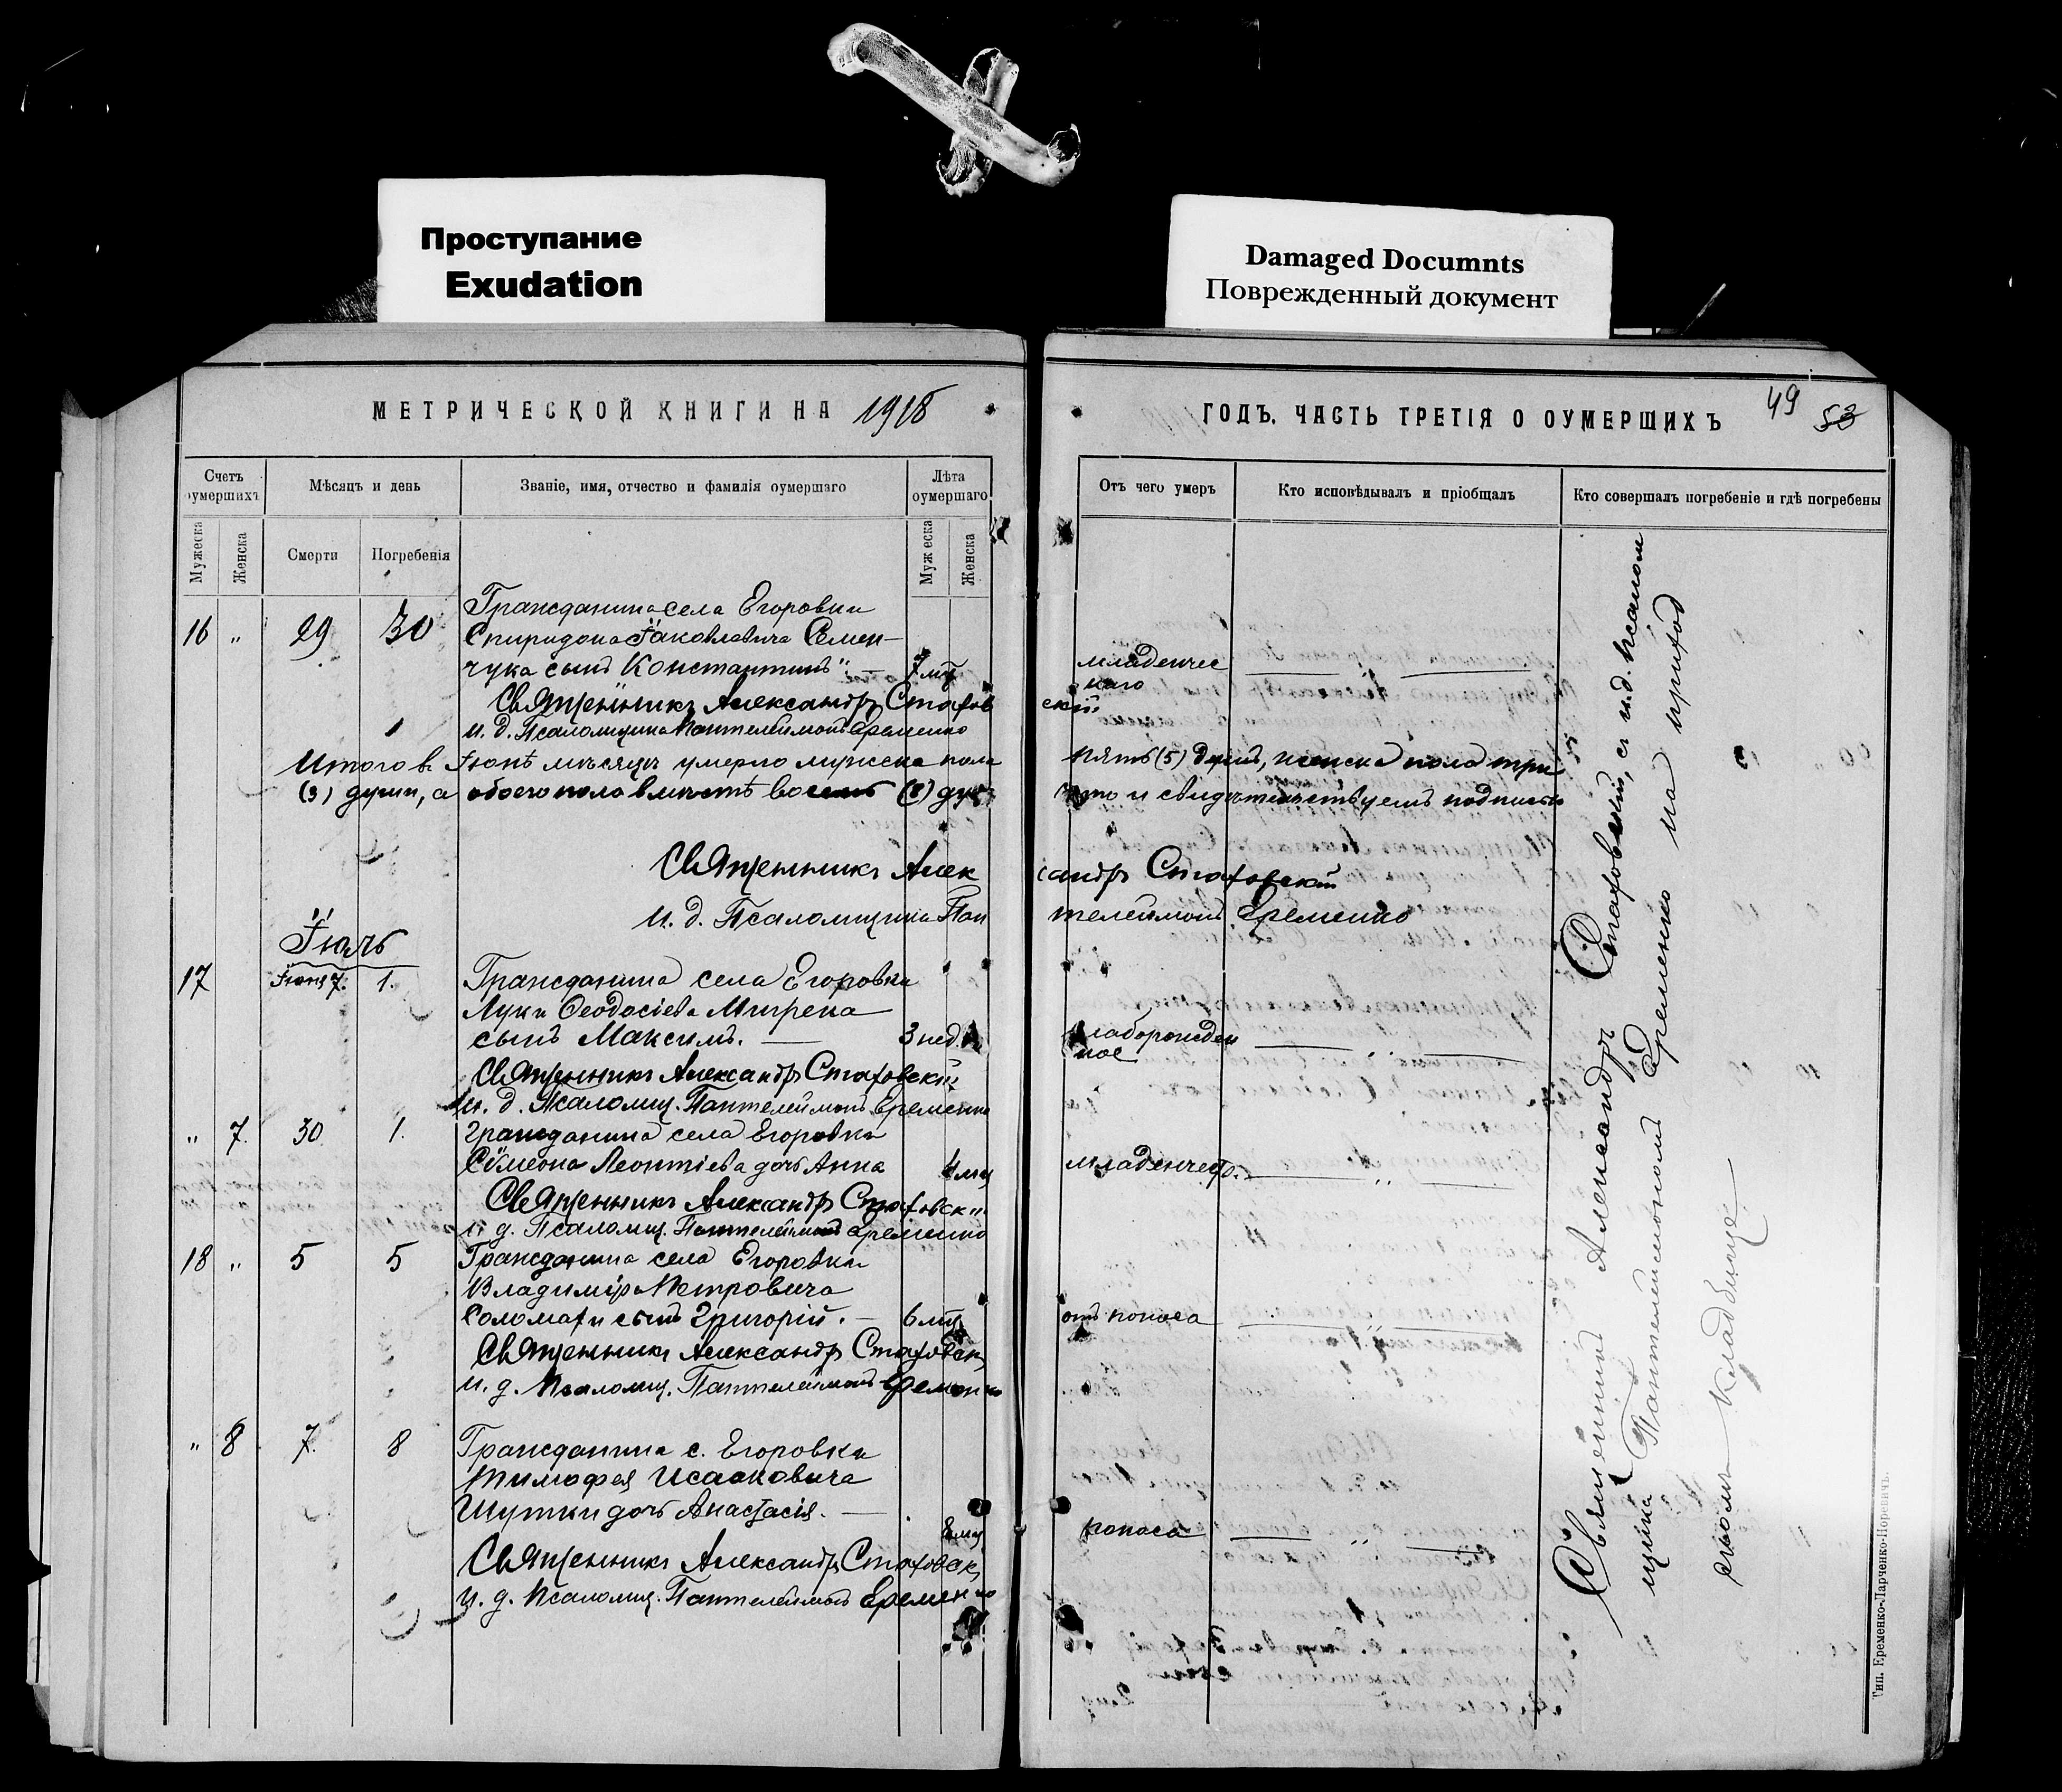 Проступание
Exudation
Damaged Documnts
Поврежденный документ
МЕТРИЧЕСКОЙ КНИГИ НА 1918
ГОДЪ. ЧАСТЬ ТРЕТІЯ О ОУМЕРШИХЪ
49
53
Счетъ оумершихъ
Мѣсяцъ и день
Званіе, имя, отчество и фамилія оумершаго
Лѣта оумершаго
Отъ чего умеръ
Кто исповѣдывалъ и пріобщалъ
Кто совершалъ погребеніе и гдѣ погребены
Мужеска
Женска
Смерти
Погребенія
Мужеска
Женска
Гражданина села Егоровки
16 " 29 30 Спиридона Іаковлевича Семен-
чука сынъ Константинъ". — 7 мц младенчес
каго
Священникъ Александръ Стахов
скій
и. д. Псаломщика Пантелеимонъ Еременко
Итого въ Іюнѣ мѣсяцѣ умерло мужска пола пять (5) душъ, женска пола три
(3) души, а обоего пола вмѣстѣ восемь (8) душ что и свидѣтельствуемъ подписью
Священникъ Александръ Стаховскій
И. д. Псаломщика Пантелеимонъ Еременко
Іюль
17 Іюня 7. 1. Гражданина села Егоровки
Луки Ѳеодосіева Мигрена
сынъ Максимъ. — 3 нед. слаборожден
ное
Священникъ Александръ Стаховскій
и. д. Псаломщ. Пантелеимонъ Еременко
" 7. 30 1. Гражданина села Егоровки
Сѵмеона Леонтіева дочь Анна мц младенчес
Священникъ Александръ Стаховскі
и д. Псаломщ. Пантелеимонъ Еременко
18 " 5 5 Гражданина села Егоровки
Владиміра Петровича
Соломахи сынъ Григорій. — 6 мц отъ поноса
Священникъ Александръ Стаховск
и. д. Псаломщ. Пантелеимонъ Еременко
" 8 7. 8 Гражданина с. Егоровки
Тимофея Исааковича
Шутки дочь Анастасія. —
8 мц поноса
Священникъ Александръ Стаховск
и. д. Псаломщ. Пантелеимонъ Еременко
Священникъ Александръ Стаховскій, съ и.д. псалом
щика Пантелеимономъ Еременко на приход
скомъ кладбище
Тип. Еременко-Ларченко-Норевичъ.